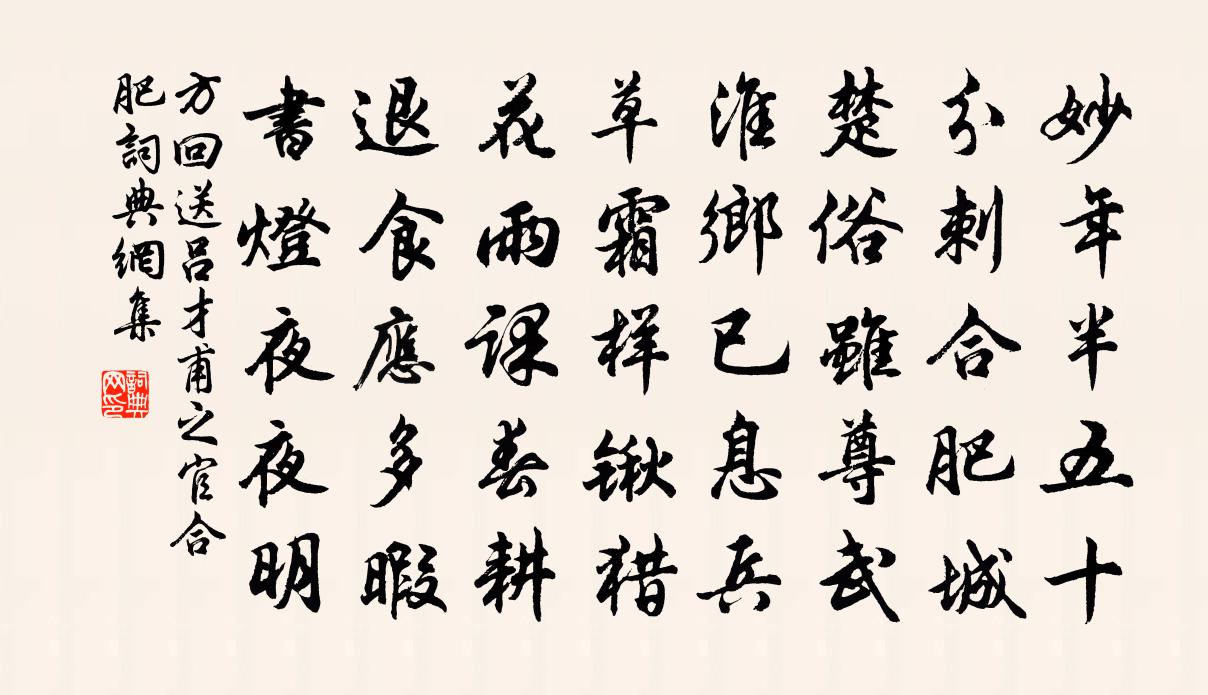 妙年半五十
分刺合肥城
楚俗雖尊武
淮鄉已息兵
草霜样锹猎
花雨课春耕
退食應多暇
書燈夜夜明
方回送呂才甫之官合
肥詞典網集
詞典
网印